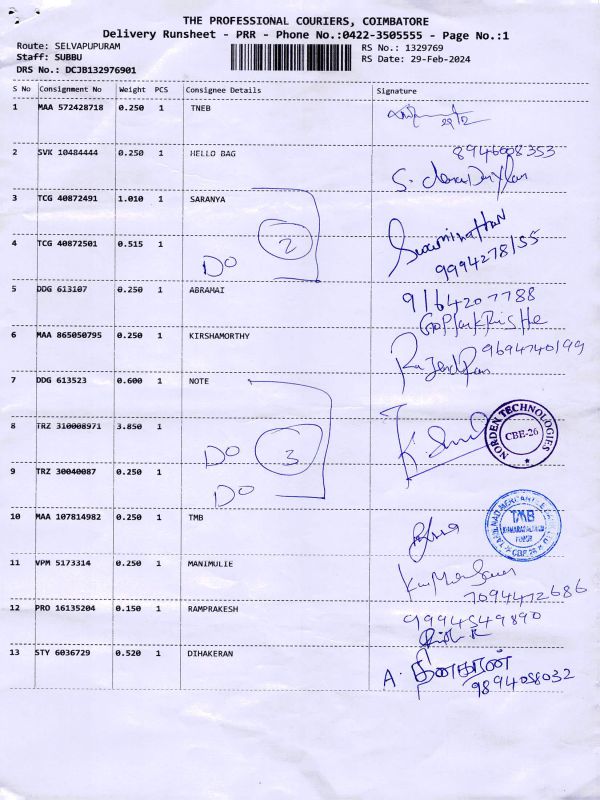 THE PROFESSIONAL COURIERS, COIMBATORE
Delivery Runsheet - PRR - Phone No.:0422-3505555 - Page No.:1
Route: SELVAPUPURAM
RS No.: 1329769
Staff: SUBBU
RS Date: 29-Feb-2024
DRS No.: DCJB132976901
S No Consignment No Weight PCS Consignee Details Signature
1 MAA 572428718 0.250 1 TNEB
29/2
2 SVK 10484444 0.250 1 HELLO BAG 8946008353
3 TCG 40872491 1.010 1 SARANYA
2
Swaminathan
4 TCG 40872501 0.515 1
DO
9994278155
5 DDG 613107 0.250 1 ABRAMAI 9164207788
6 MAA 865050795 0.250 1 KIRSHAMORTHY 9694740199
7 DDG 613523 0.600 1 NOTE
NORDEN TECHNOLOGIES
CBE-26
8 TRZ 310008971 3.850 1
DO 3
9 TRZ 30040087 0.250 1
DO
10 MAA 107814982 0.250 1 TMB
TMB
11 VPM 5173314 0.250 1 MANIMULIE
7094472686
12 PRO 16135204 0.150 1 RAMPRAKESH 9994549890
13 STY 6036729 0.520 1 DIHAKERAN
A.
9894058032